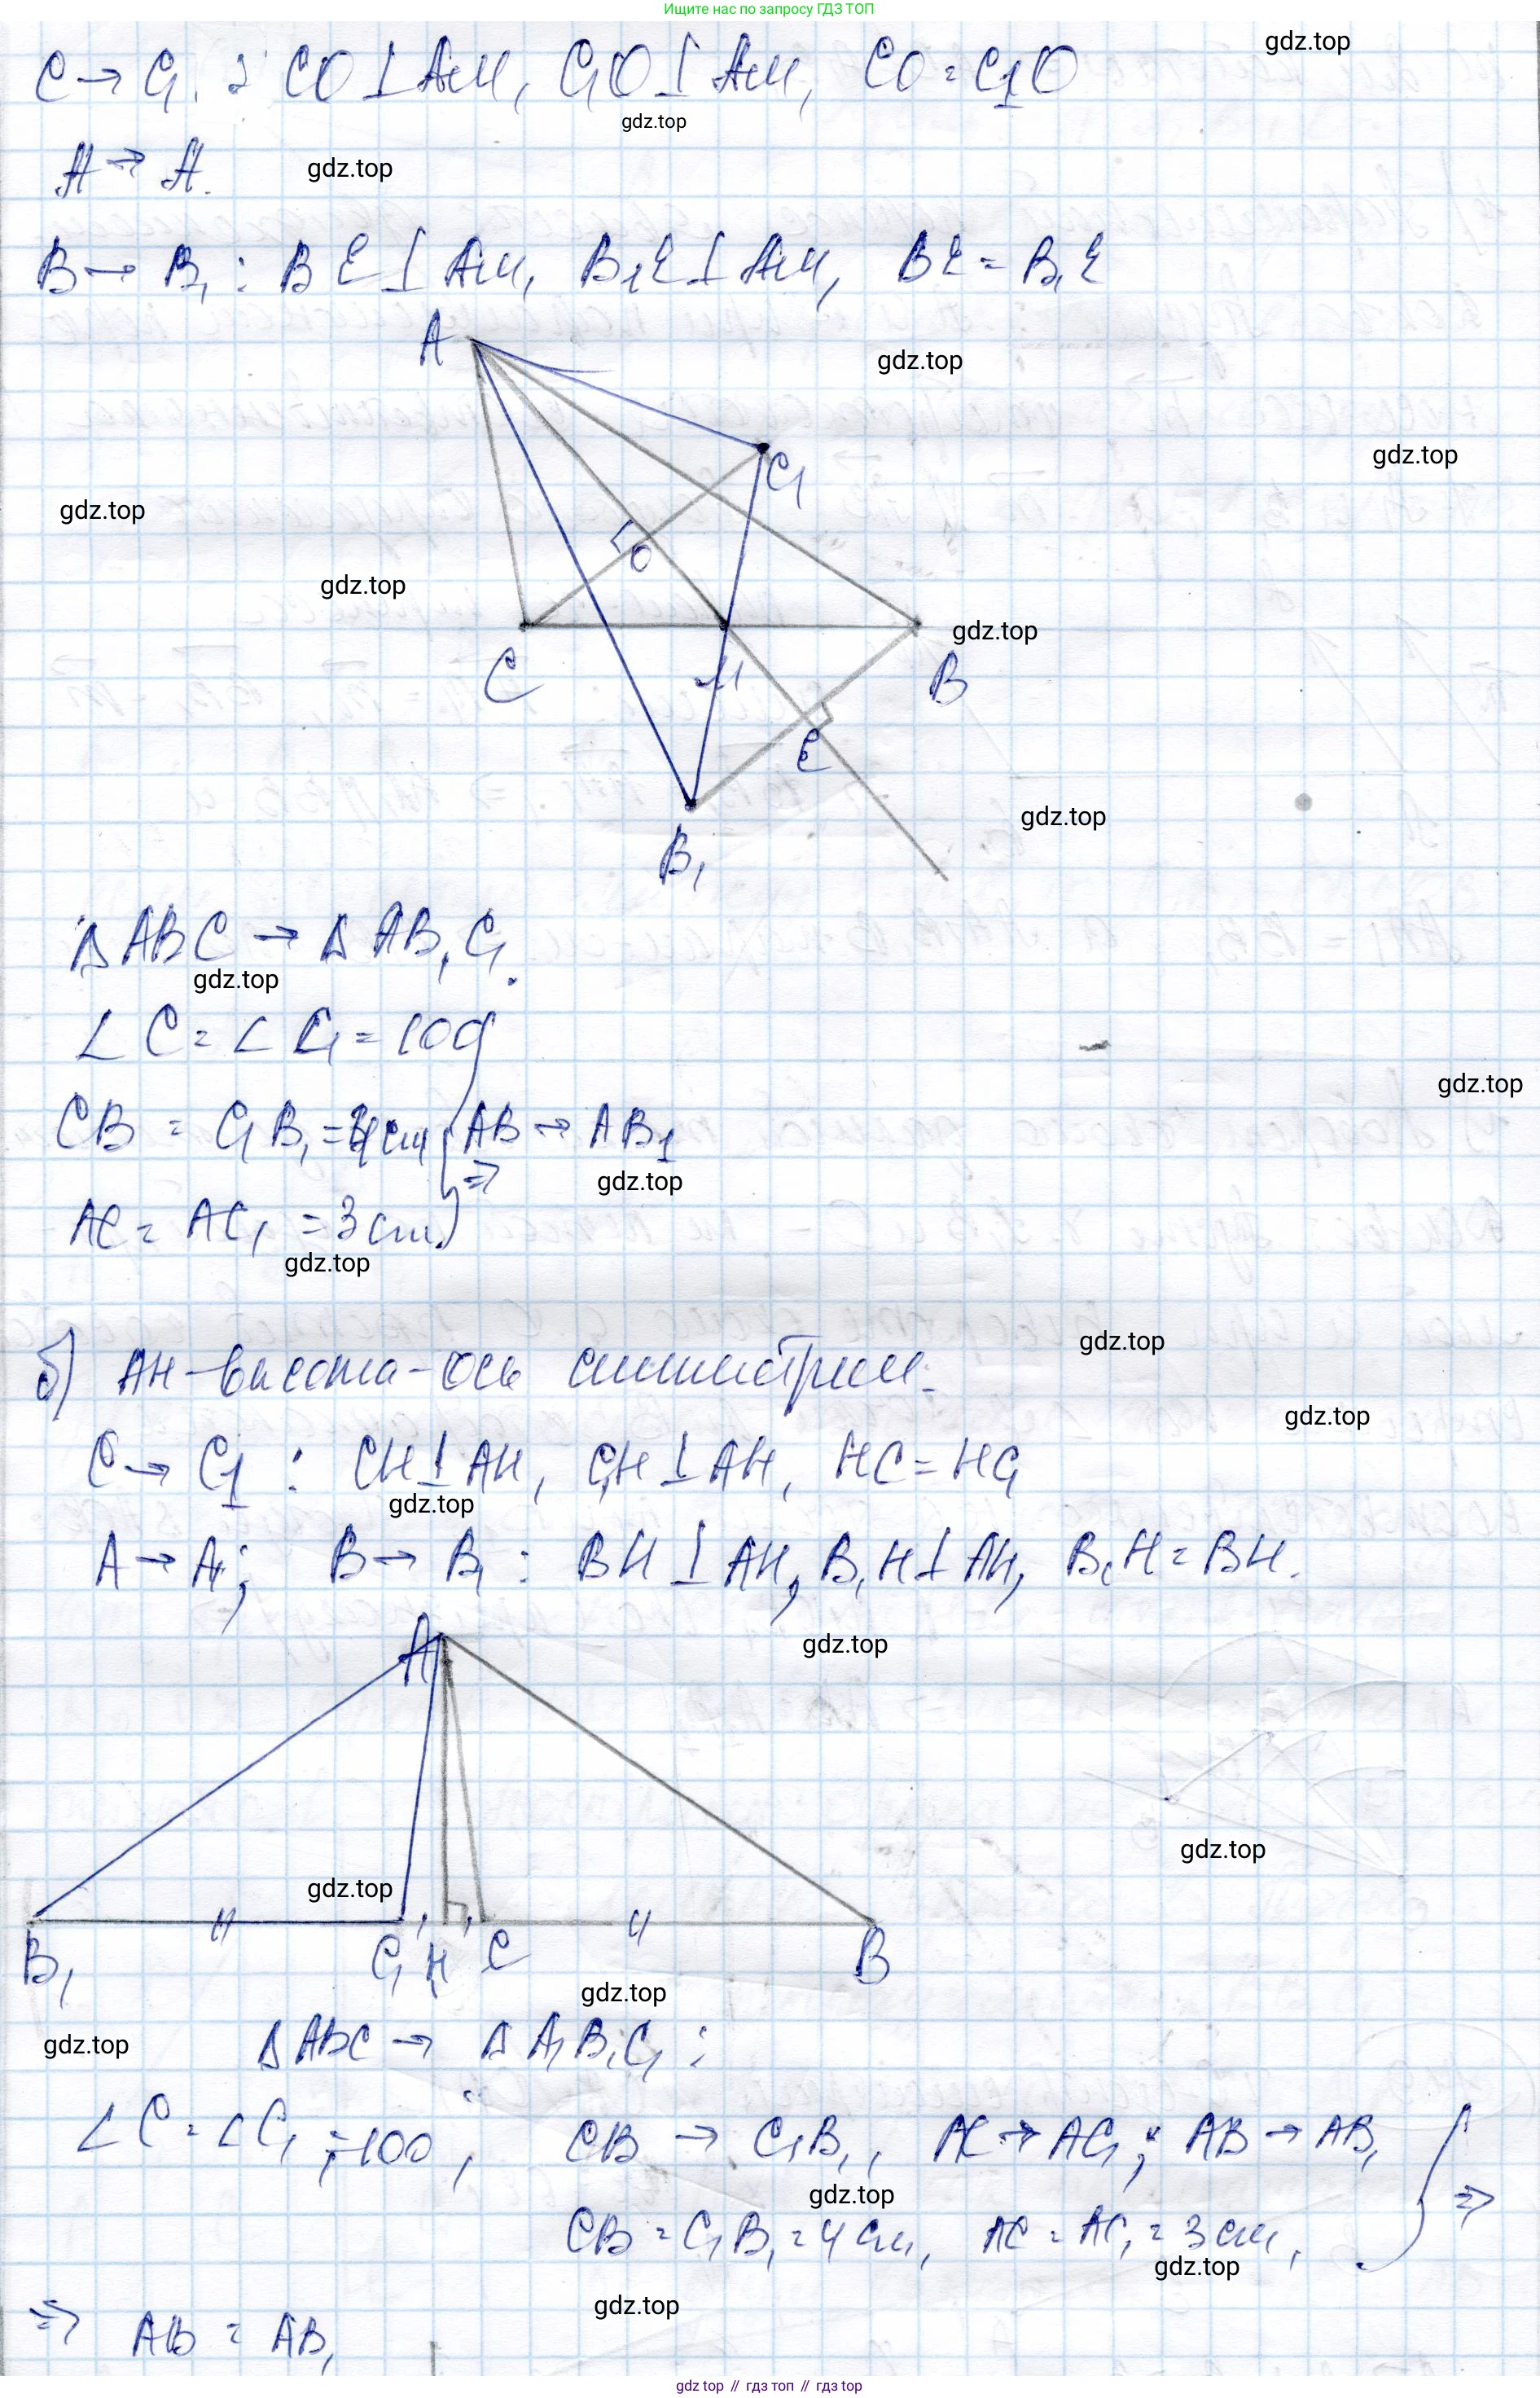 Ищите нас по запросу ГДЗ ТОП
gdz.top
C → C₁ : CO ⊥ AM, C₁O ⊥ AM, CO = C₁O
gdz.top
A → A.
gdz.top
B → B₁ : BE ⊥ AM, B₁E ⊥ AM, BE = B₁E
A
gdz.top
C₁
gdz.top
gdz.top
O
gdz.top
gdz.top
C
M
B
E
gdz.top
B₁
△ABC → △AB₁C₁.
gdz.top
∠C = ∠C₁ = 100°
gdz.top
CB = C₁B₁ = 4 cm } AB → AB₁
⇒
gdz.top
AC = AC₁ = 3 cm.
gdz.top
gdz.top
б) AH - высота - ось симметрии.
gdz.top
C → C₁ : CH ⊥ AH, C₁H ⊥ AH, HC = HC₁
gdz.top
A → A; B → B₁ : BH ⊥ AH, B₁H ⊥ AH, B₁H = BH.
A
gdz.top
gdz.top
gdz.top
B₁ C₁ H C B
gdz.top
gdz.top
△ABC → △A₁B₁C₁ :
∠C = ∠C₁ = 100°, CB → C₁B₁, AC → AC₁; AB → AB₁ } ⇒
gdz.top
CB = C₁B₁ = 4 cm, AC = AC₁ = 3 cm,
gdz.top
gdz.top
⇒ AB = AB₁
gdz top // гдз топ // гдз top